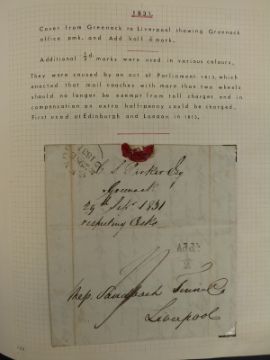 1831
Cover from Greenock to Liverpool showing Greenock
office pmk. and Add half d mark.
Additional ½d. marks were used in various colours.
They were caused by an act of Parliament 1813, which
enacted that mail coaches with more than two wheels
should no longer be exempt from toll charges and in
compensation an extra halfpenny could be charged.
First used at Edinburgh and London in 1813.
Greenock
29th Feb. 1831
respecting
Liverpool